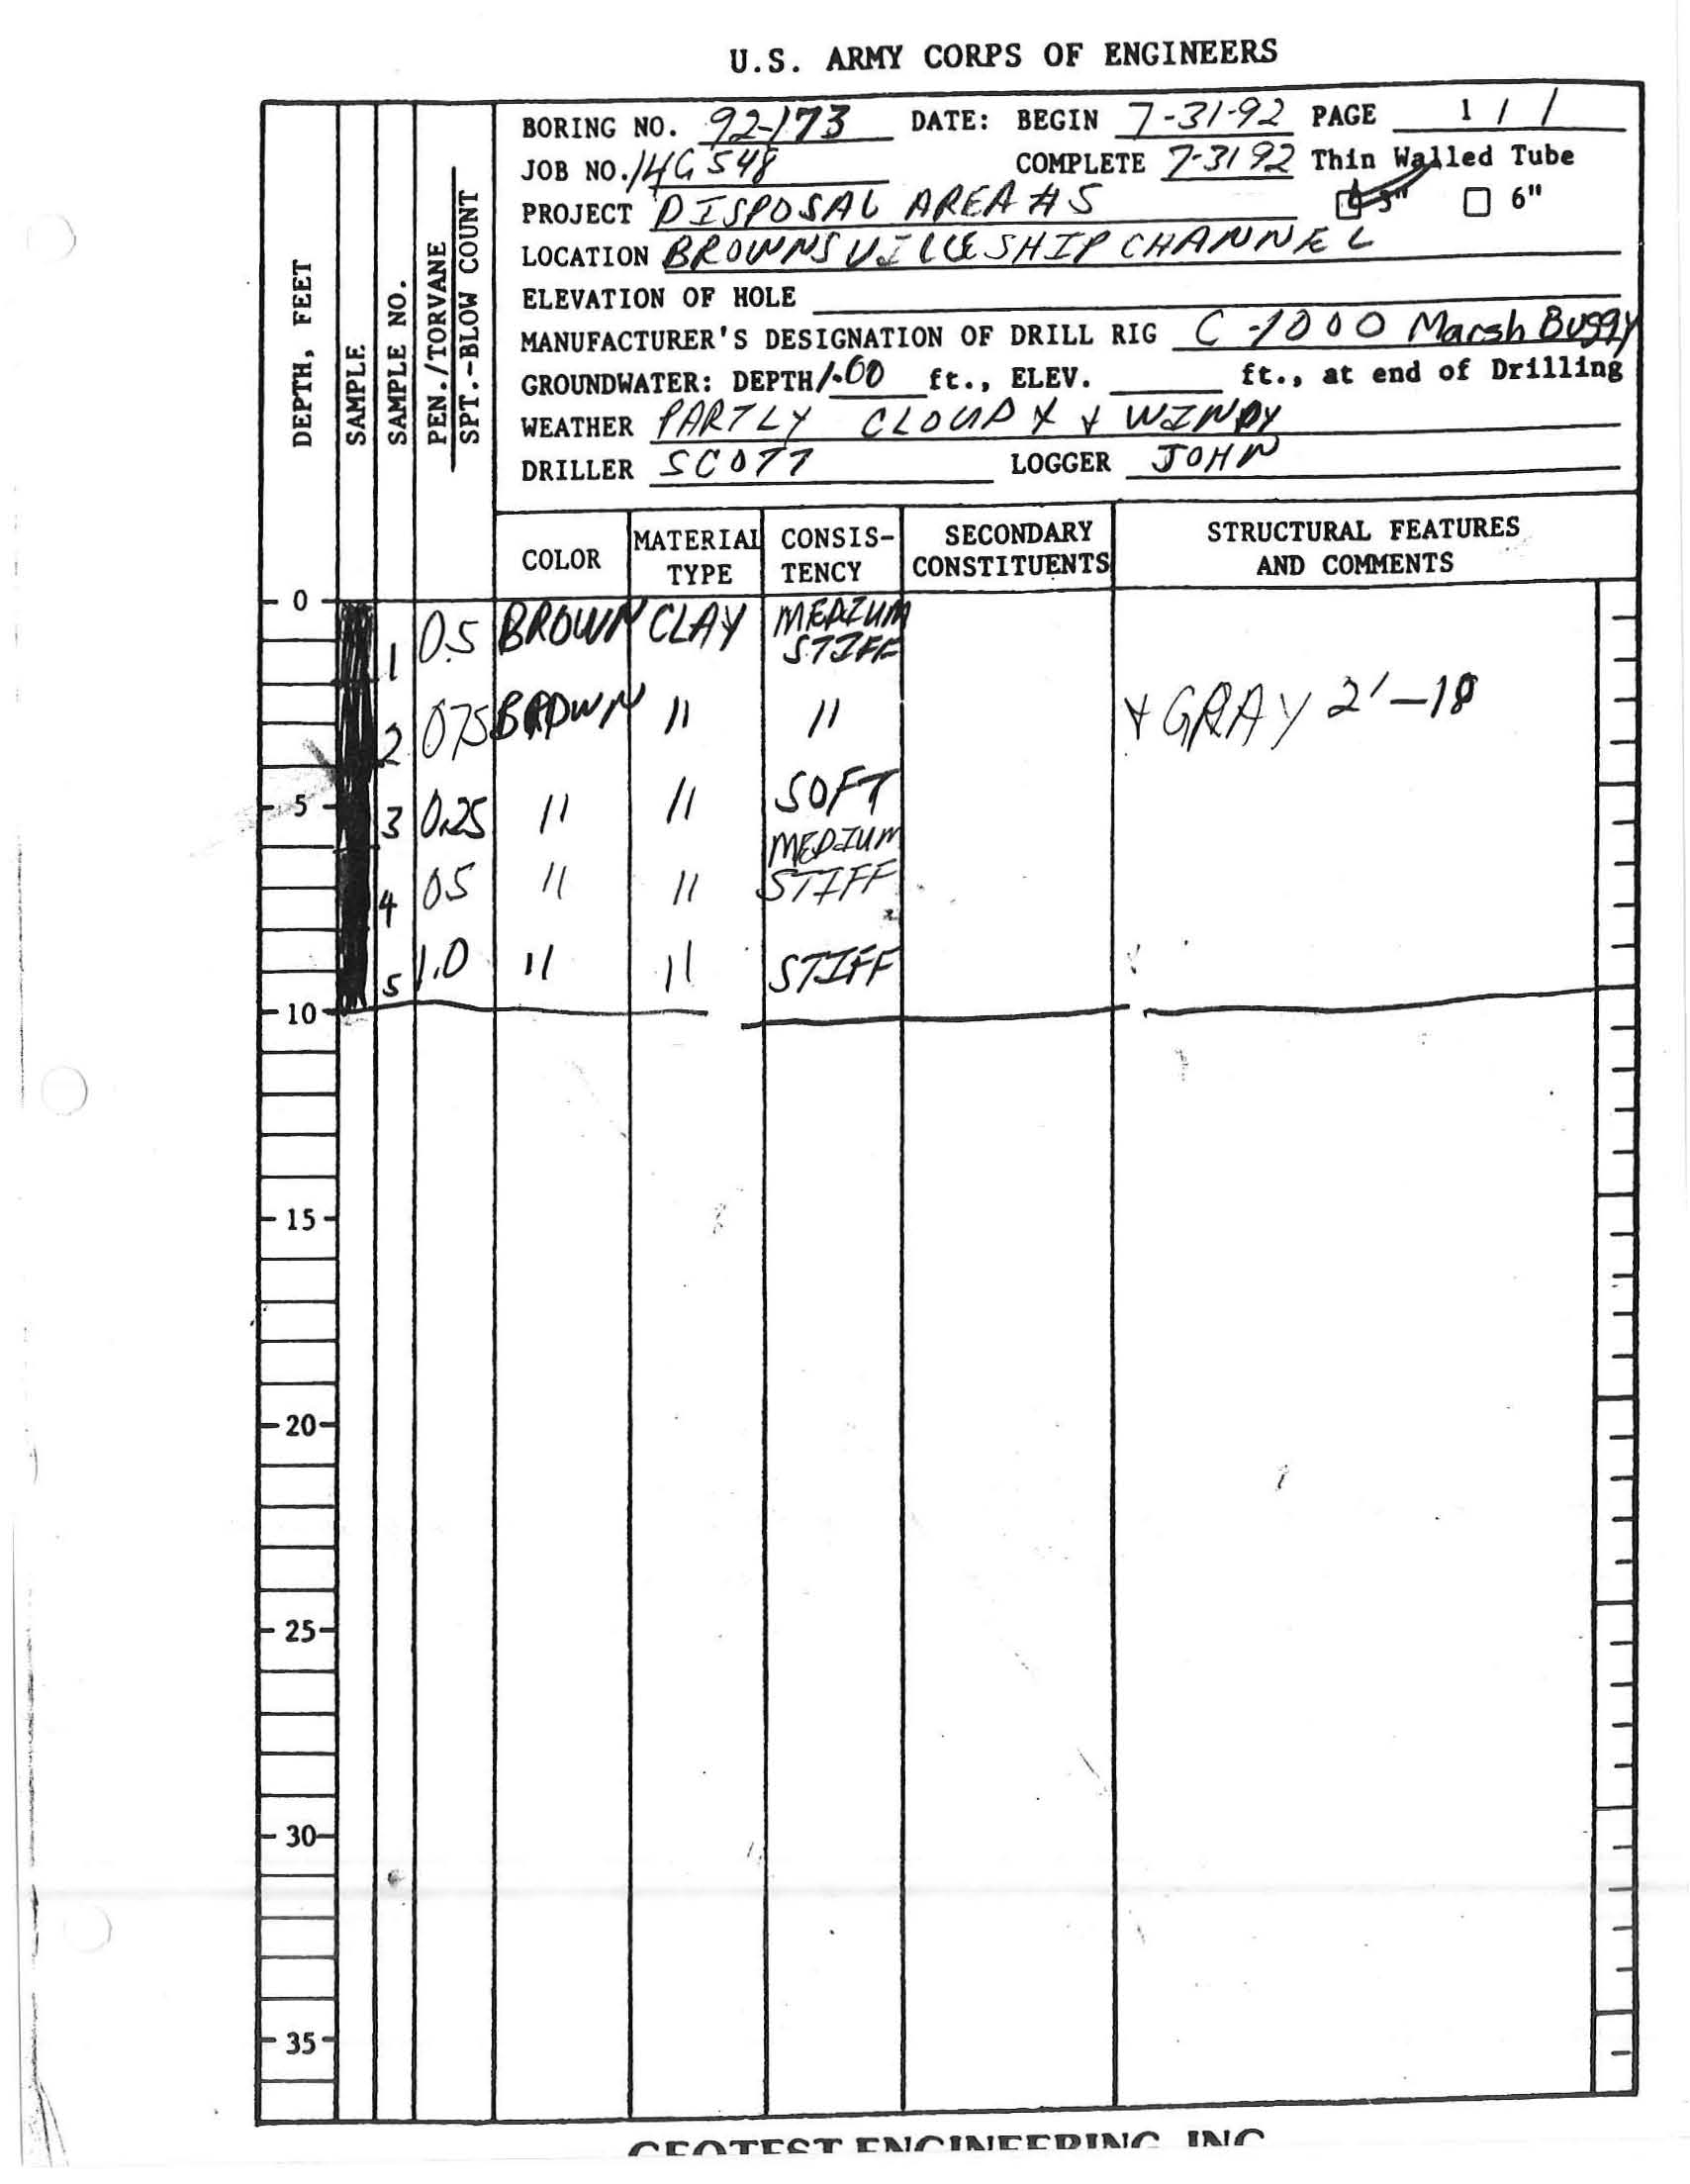 U.S. ARMY CORPS OF ENGINEERS
BORING NO. 92-173 DATE: BEGIN 7-31-92 PAGE 1 / 1
JOB NO. 14G548 COMPLETE 7-31 92 Thin Walled Tube
PROJECT DISPOSAL AREA #5 3" 6"
LOCATION BROWNSVILLE SHIP CHANNEL
ELEVATION OF HOLE
MANUFACTURER'S DESIGNATION OF DRILL RIG C-1000 Marsh Buggy
GROUNDWATER: DEPTH 1.00 ft., ELEV. ft., at end of Drilling
WEATHER PARTLY CLOUDY & WINDY
DRILLER SCOTT LOGGER JOHN
DEPTH, FEET
SAMPLE
SAMPLE NO.
PEN./TORVANE
SPT.-BLOW COUNT
COLOR
MATERIAL
TYPE
CONSIS-
TENCY
SECONDARY
CONSTITUENTS
STRUCTURAL FEATURES
AND COMMENTS
0
1 0.5 BROWN CLAY MEDIUM
STIFF
2 075 BROWN " " & GRAY 2'-
5
3 0.25 " " SOFT
MEDIUM
4 05 " " STIFF
5 1.0 " " STIFF
10
15
20
25
30
35
GEOTEST ENGINEERING, INC